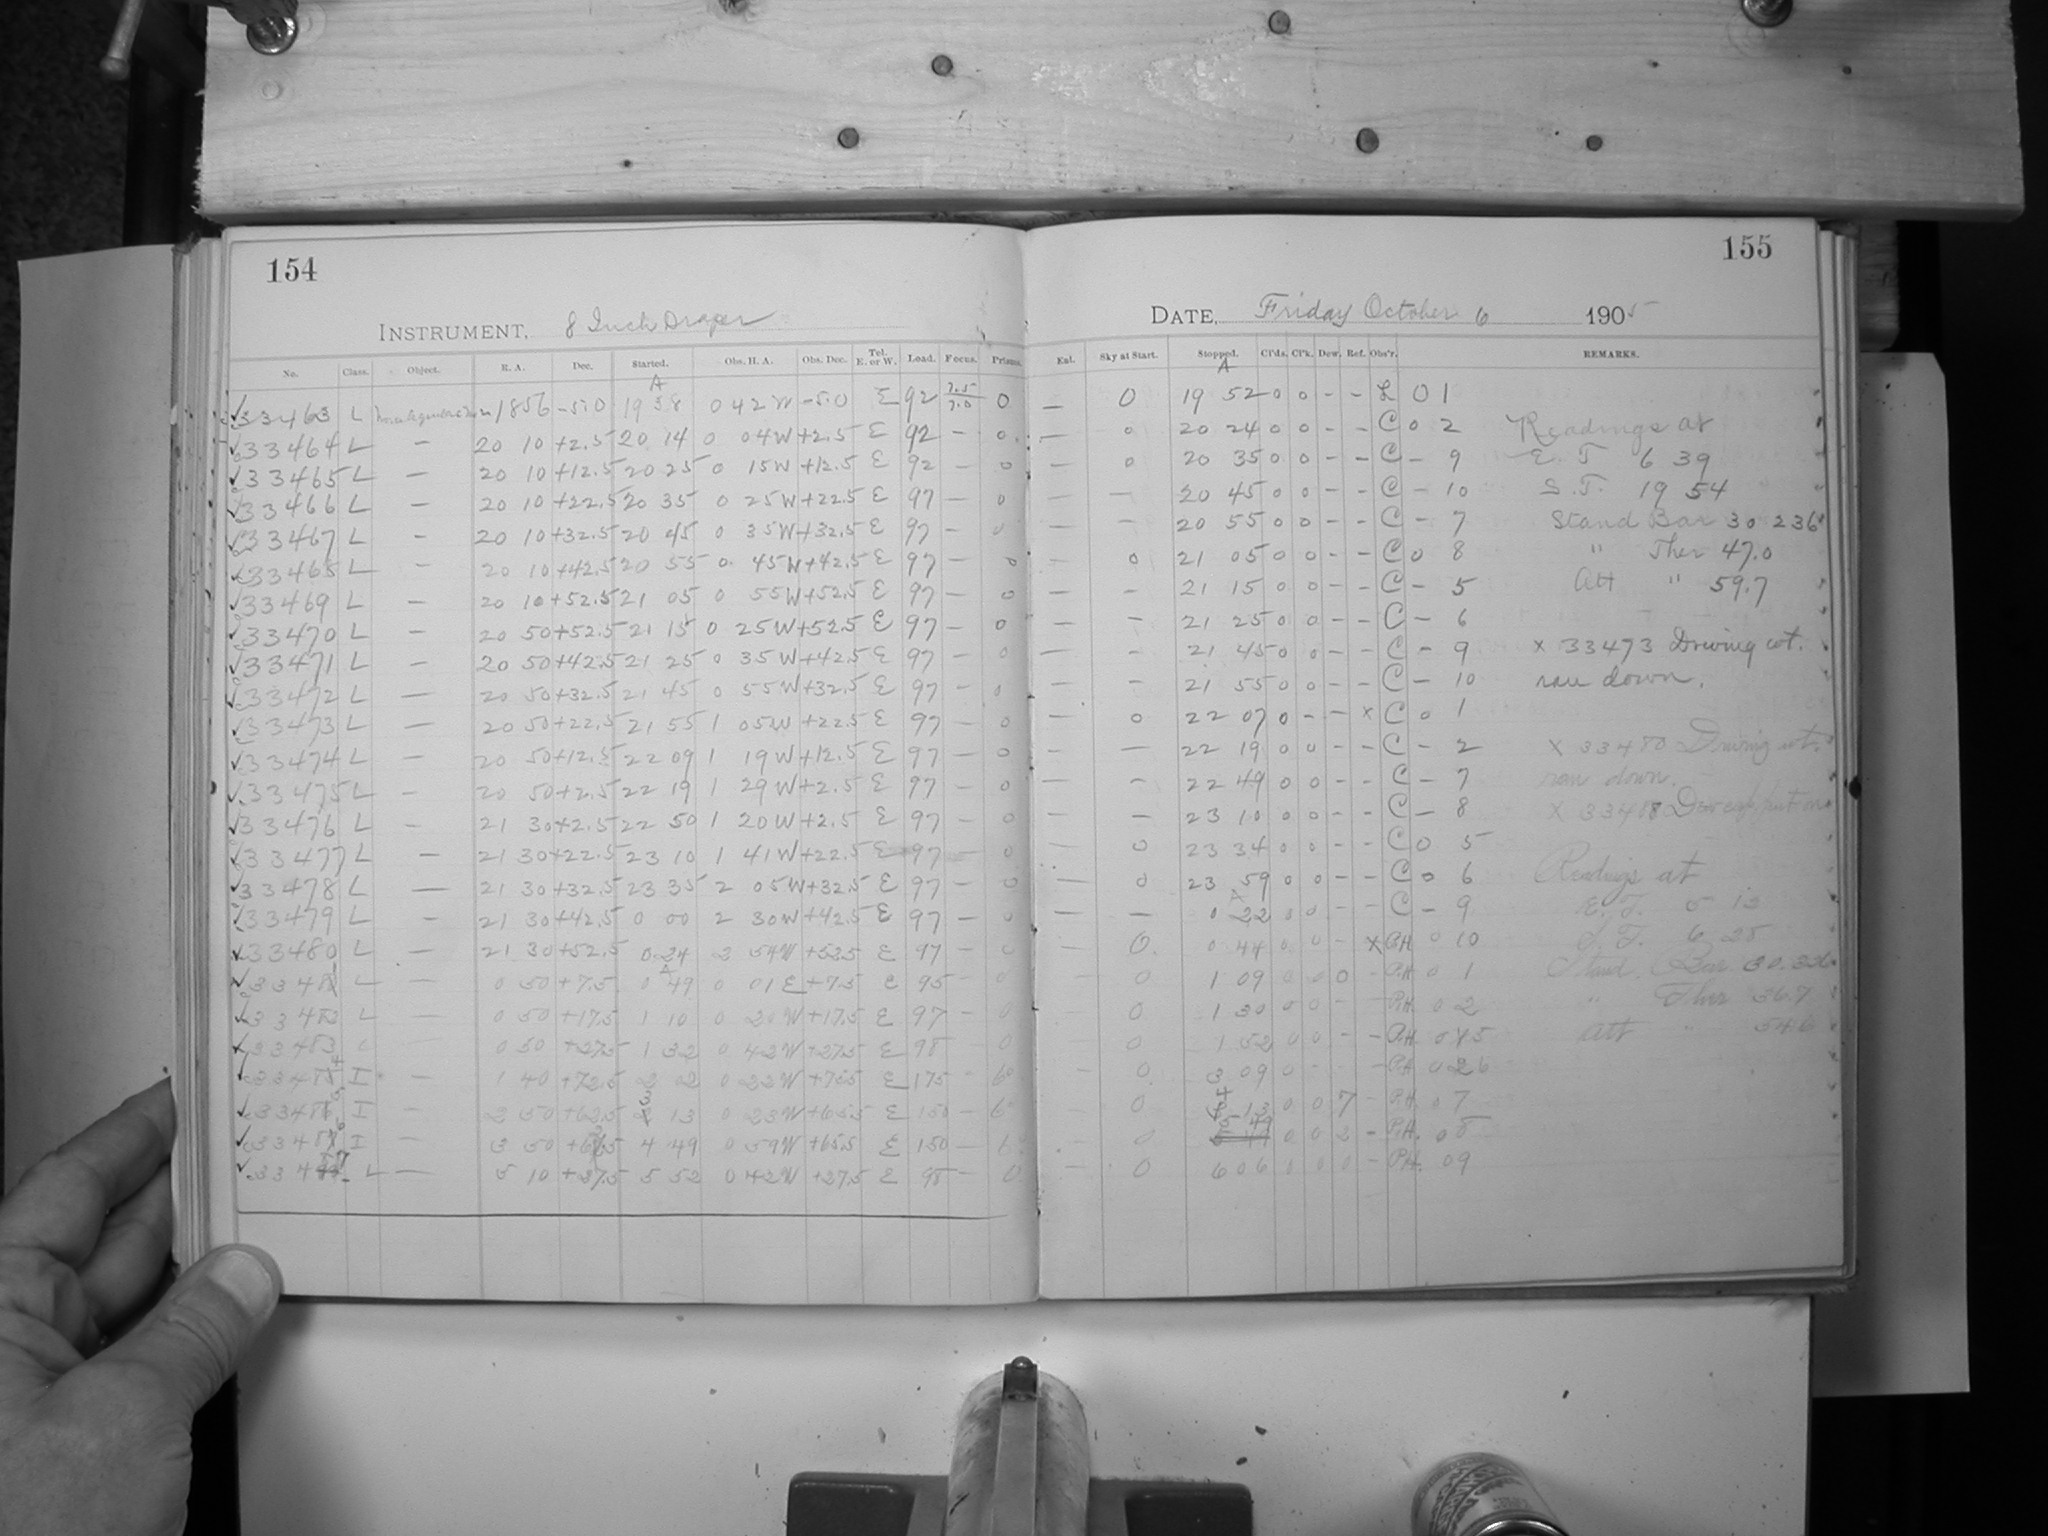 154
155
INSTRUMENT, 8 Inch Draper
DATE, Friday October 6 1905
No. Class. Object. R. A. Dec. Started. Obs. H. A. Obs. Dec. Tel. E. or W. Load. Focus. Prisms.
Ent. Sky at Start. Stopped. Cl'ds. Cl'k. Dew. Ref. Obs'r. REMARKS.
A
A
33463 L 1856 -5.0 19 38 0 42 W -5.0 E 92 7.5 7.0 0 — 0 19 52 0 0 - - L 0 1
33464 L — 20 10 +2.5 20 14 0 04 W +2.5 E 92 — 0 — 0 20 24 0 0 - - C 0 2 Readings at
33465 L — 20 10 +12.5 20 25 0 15 W +12.5 E 92 — 0 — 0 20 35 0 0 - - C - 9 E. T 6 39
33466 L — 20 10 +22.5 20 35 0 25 W +22.5 E 97 — 0 — — 20 45 0 0 - - C - 10 S.T. 19 54
33467 L - 20 10 +32.5 20 45 0 35 W +32.5 E 97 — 0 — - 20 55 0 0 - - C - 7 Stand Bar 30 236
33468 L - 20 10 +42.5 20 55 0 45 W +42.5 E 97 — 0 — 0 21 05 0 0 - - C 0 8 " Ther 47.0
33469 L — 20 10 +52.5 21 05 0 55 W +52.5 E 97 — 0 — - 21 15 0 0 - - C - 5 Att " 59.7
33470 L — 20 50 +52.5 21 15 0 25 W +52.5 E 97 — 0 — - 21 25 0 0 - - C - 6
33471 L — 20 50 +42.5 21 25 0 35 W +42.5 E 97 — 0 — - 21 45 0 0 - - C - 9 x 33473 Driving wt.
33472 L — 20 50 +32.5 21 45 0 55 W +32.5 E 97 - 0 — - 21 55 0 0 - - C - 10 ran down.
33473 L — 20 50 +22.5 21 55 1 05 W +22.5 E 97 — 0 — 0 22 07 0 - - x C 0 1
33474 L — 20 50 +12.5 22 09 1 19 W +12.5 E 97 — 0 — — 22 19 0 0 - - C - 2 x 33480 Driving wt.
33475 L - 20 50 +2.5 22 19 1 29 W +2.5 E 97 - 0 — - 22 49 0 0 - - C - 7 ran down.
33476 L - 21 30 +2.5 22 50 1 20 W +2.5 E 97 - 0 — - 23 10 0 0 - - C - 8 x Dewcap put on
33477 L — 21 30 +22.5 23 10 1 41 W +22.5 E 97 — 0 — 0 23 34 0 0 - - C 0 5
33478 L — 21 30 +32.5 23 35 2 05 W +32.5 E 97 — 0 — 0 23 59 0 0 - - C 0 6 Readings at
33479 L - 21 30 +42.5 0 00 2 30 W +42.5 E 97 — 0 — — 0 22 0 0 - - C - 9 E. T.
33480 L — 21 30 +52.5 0 24 2 54 W +52.5 E 97 — 0 — 0 0 44 0 0 - x P.H. 0 10 S. T. 6 25
L — 0 50 +7.5 0 49 0 01 E +7.5 E 95 — 0 — 0 1 09 0 0 0 - P.H. 0 1 Stand. Bar 30.
L — 0 50 +17.5 1 10 0 20 W +17.5 E 97 — 0 — 0 1 30 0 0 - - P.H. 0 2 " Ther 36.7
33483 L — 0 50 +27.5 1 32 0 42 W +27.5 E 98 — 0 — 0 1 52 0 0 - - P.H. Att "
I — 1 40 2 02 0 22 W E 175 — - 0 3 09 0 - - - P.H.
I — 2 50 3 13 0 23 W E 150 — - 0 0 0 7 - P.H. 0 7
I — 3 50 4 49 0 59 W +65.5 E 150 — - 0 0 0 2 - P.H. 0 8
L — 5 10 5 52 0 42 W +27.5 E 98 — 0 - 0 6 06 0 0 0 - P.H. 0 9